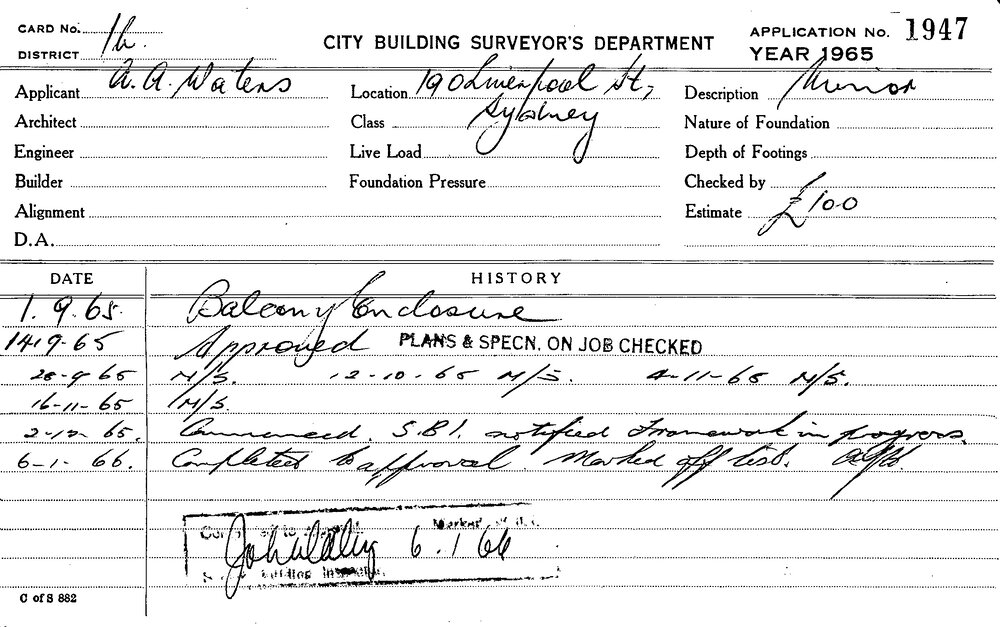 CARD No. 1b.
DISTRICT
CITY BUILDING SURVEYOR'S DEPARTMENT
APPLICATION No. 1947
YEAR 1965
Applicant A. A. Waters Location 190 Liverpool St, Description Minor
Architect Class Sydney Nature of Foundation
Engineer Live Load Depth of Footings
Builder Foundation Pressure Checked by
Alignment Estimate £100
D.A.
DATE HISTORY
1.9.65. Balcony Enclosure
14.9-65 Approved PLANS & SPECN. ON JOB CHECKED
28-9-65 M/S. 12-10-65 M/S. 4-11-65 M/S.
16-11-65 M/S.
2-12-65. Commenced. S.B.I. notified Framework in progress.
6-1-66. Completed to approval. Marked off list.
6.1.66
C of S 882